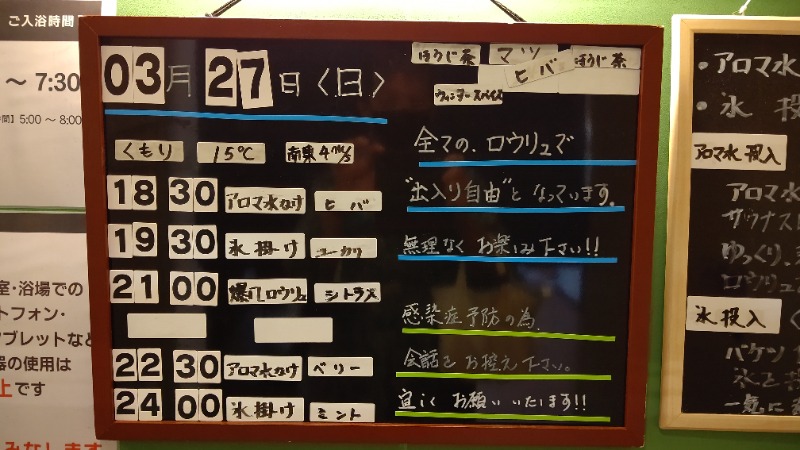 ご入浴時間
～ 7:30
間】5:00 ～ 8:00
室・浴場での
トフォン・
タブレットなど
器の使用は
止です
みなします
03月27日〈日〉
くもり 15℃ 南東4m/s
18 30 アロマ水かけ ヒバ
19 30 氷掛け ユーカリ
21 00 爆風ロウリュ シトラス
22 30 アロマ水かけ ベリー
24 00 氷掛け ミント
ほうじ茶 マツ ヒバ ほうじ茶
ウィンタースパイス
全ての、ロウリュで
"出入り自由"となっています。
無理なくお楽しみ下さい!!
感染症予防の為、
会話をお控え下さい。
宜しくお願いいたします!!
・アロマ水
・氷 投
アロマ水投入
アロマ
サウナス
ゆっくり、
ロウリュ
氷投入
バケツ
氷を
一気に